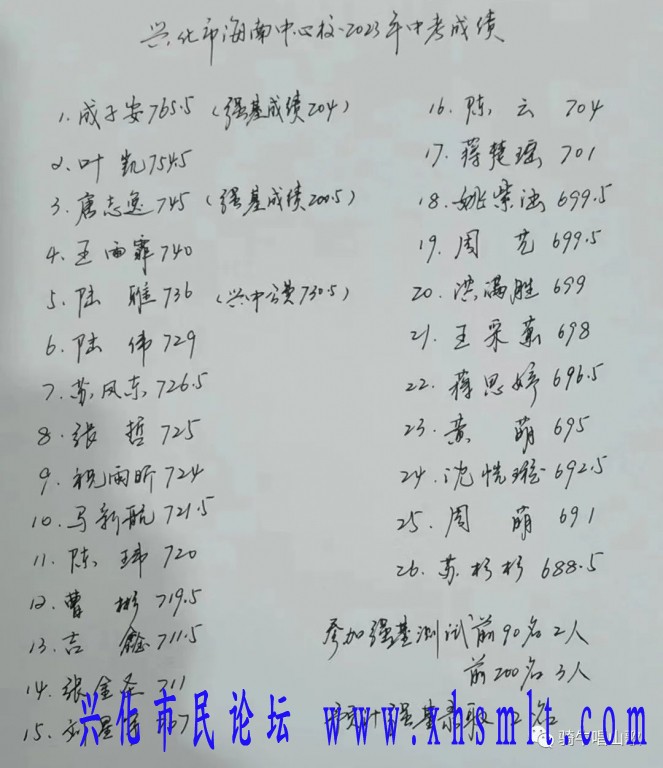 兴化市海南中心校2023年中考成绩
1. 成子安 765.5 (强基成绩204)
2. 叶凯 754.5
3. 唐志逸 745 (强基成绩200.5)
4. 王雨霏 740
5. 陆 雎 736 (兴中分费730.5)
6. 陆 伟 729
7. 苏风东 726.5
8. 张 哲 725
9. 祝雨昕 724
10. 马新航 721.5
11. 陈 玮 720
12. 曹 彬 719.5
13. 吉 鑫 711.5
14. 张金圣 711
15. 刘星 7
16. 陈 云 704
17. 蒋楚瑶 701
18. 姚紫涵 699.5
19. 周 艺 699.5
20. 洪满胜 699
21. 王采薰 698
22. 蒋思婷 696.5
23. 黄 萌 695
24. 沈恍璇 692.5
25. 周 萌 691
26. 苏杉杉 688.5
参加强基测试前90名2人
前200名3人
强基录取2名
兴化市民论坛 www.xhsmlt.com
骑牛唱山歌